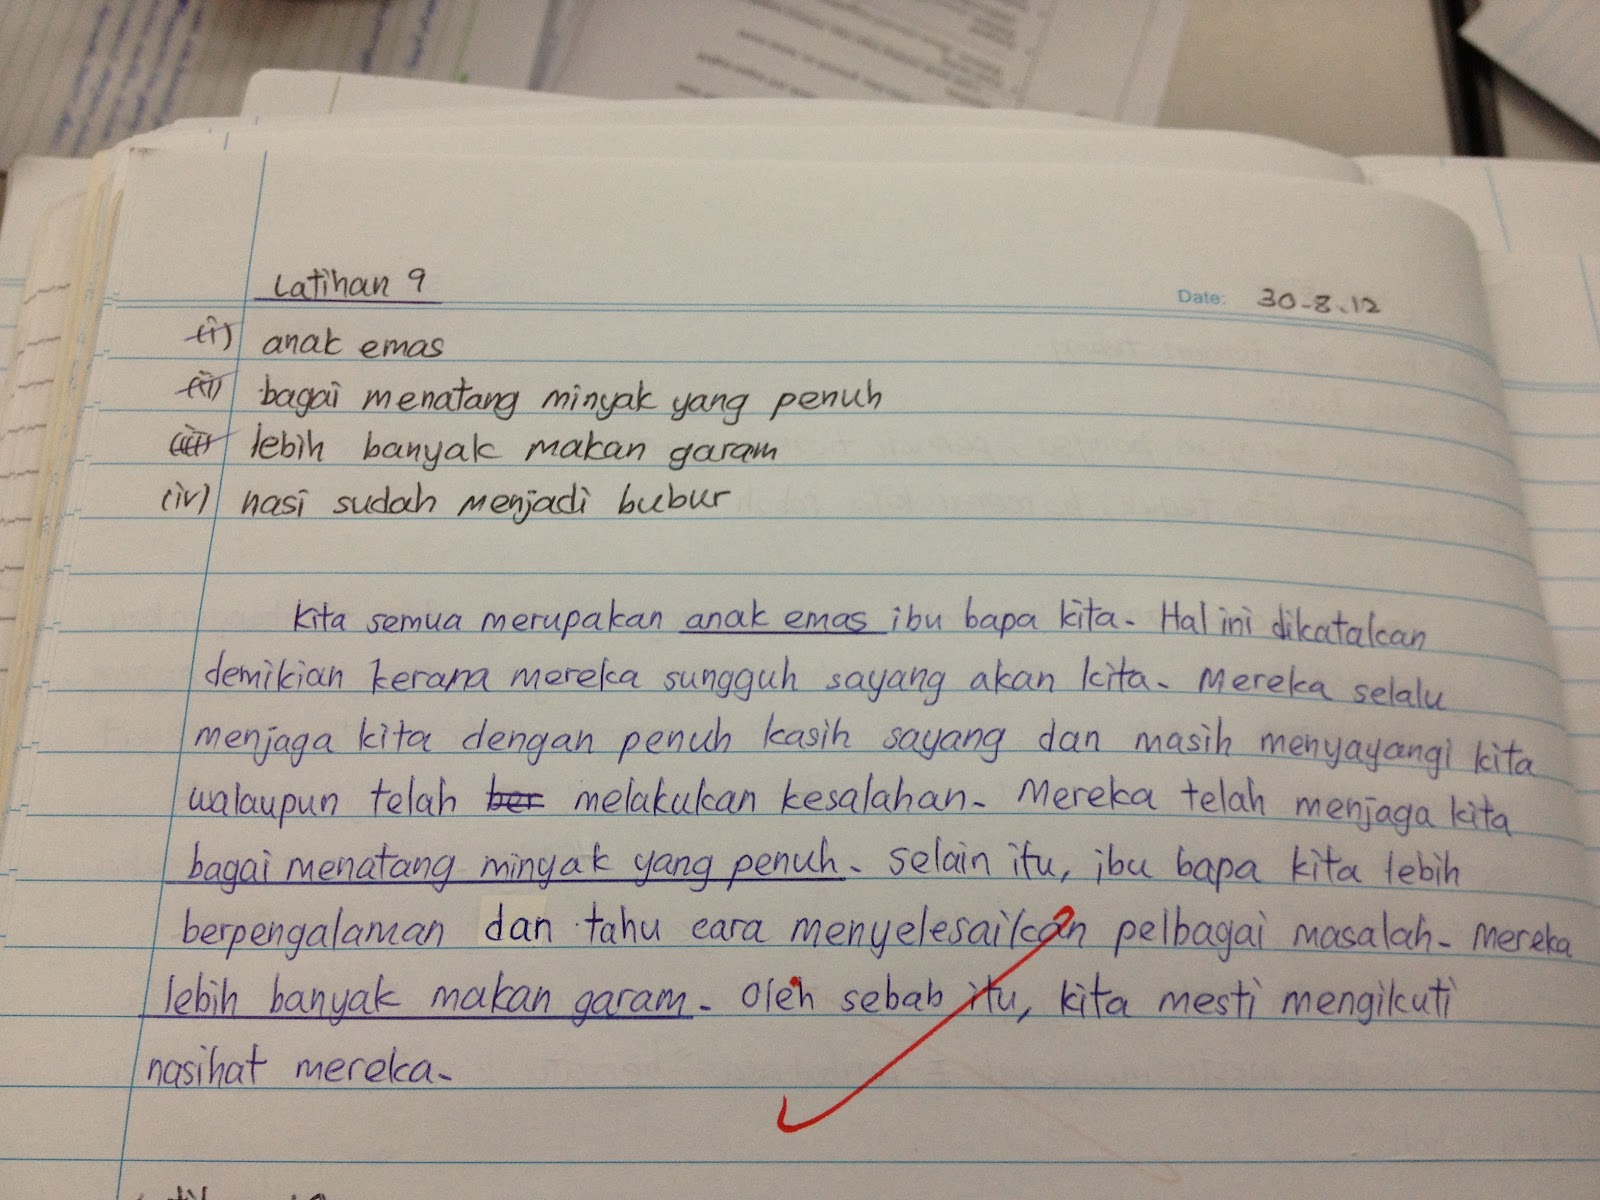 Latihan 9
Date: 30-8.12
(i) anak emas
(ii) bagai menatang minyak yang penuh
(iii) lebih banyak makan garam
(iv) nasi sudah menjadi bubur
Kita semua merupakan anak emas ibu bapa kita. Hal ini dikatakan
demikian kerana mereka sungguh sayang akan kita. Mereka selalu
menjaga kita dengan penuh kasih sayang dan masih menyayangi kita
walaupun telah ber melakukan kesalahan. Mereka telah menjaga kita
bagai menatang minyak yang penuh. Selain itu, ibu bapa kita lebih
berpengalaman dan tahu cara menyelesaikan pelbagai masalah. Mereka
lebih banyak makan garam. Oleh sebab itu, kita mesti mengikuti
nasihat mereka.